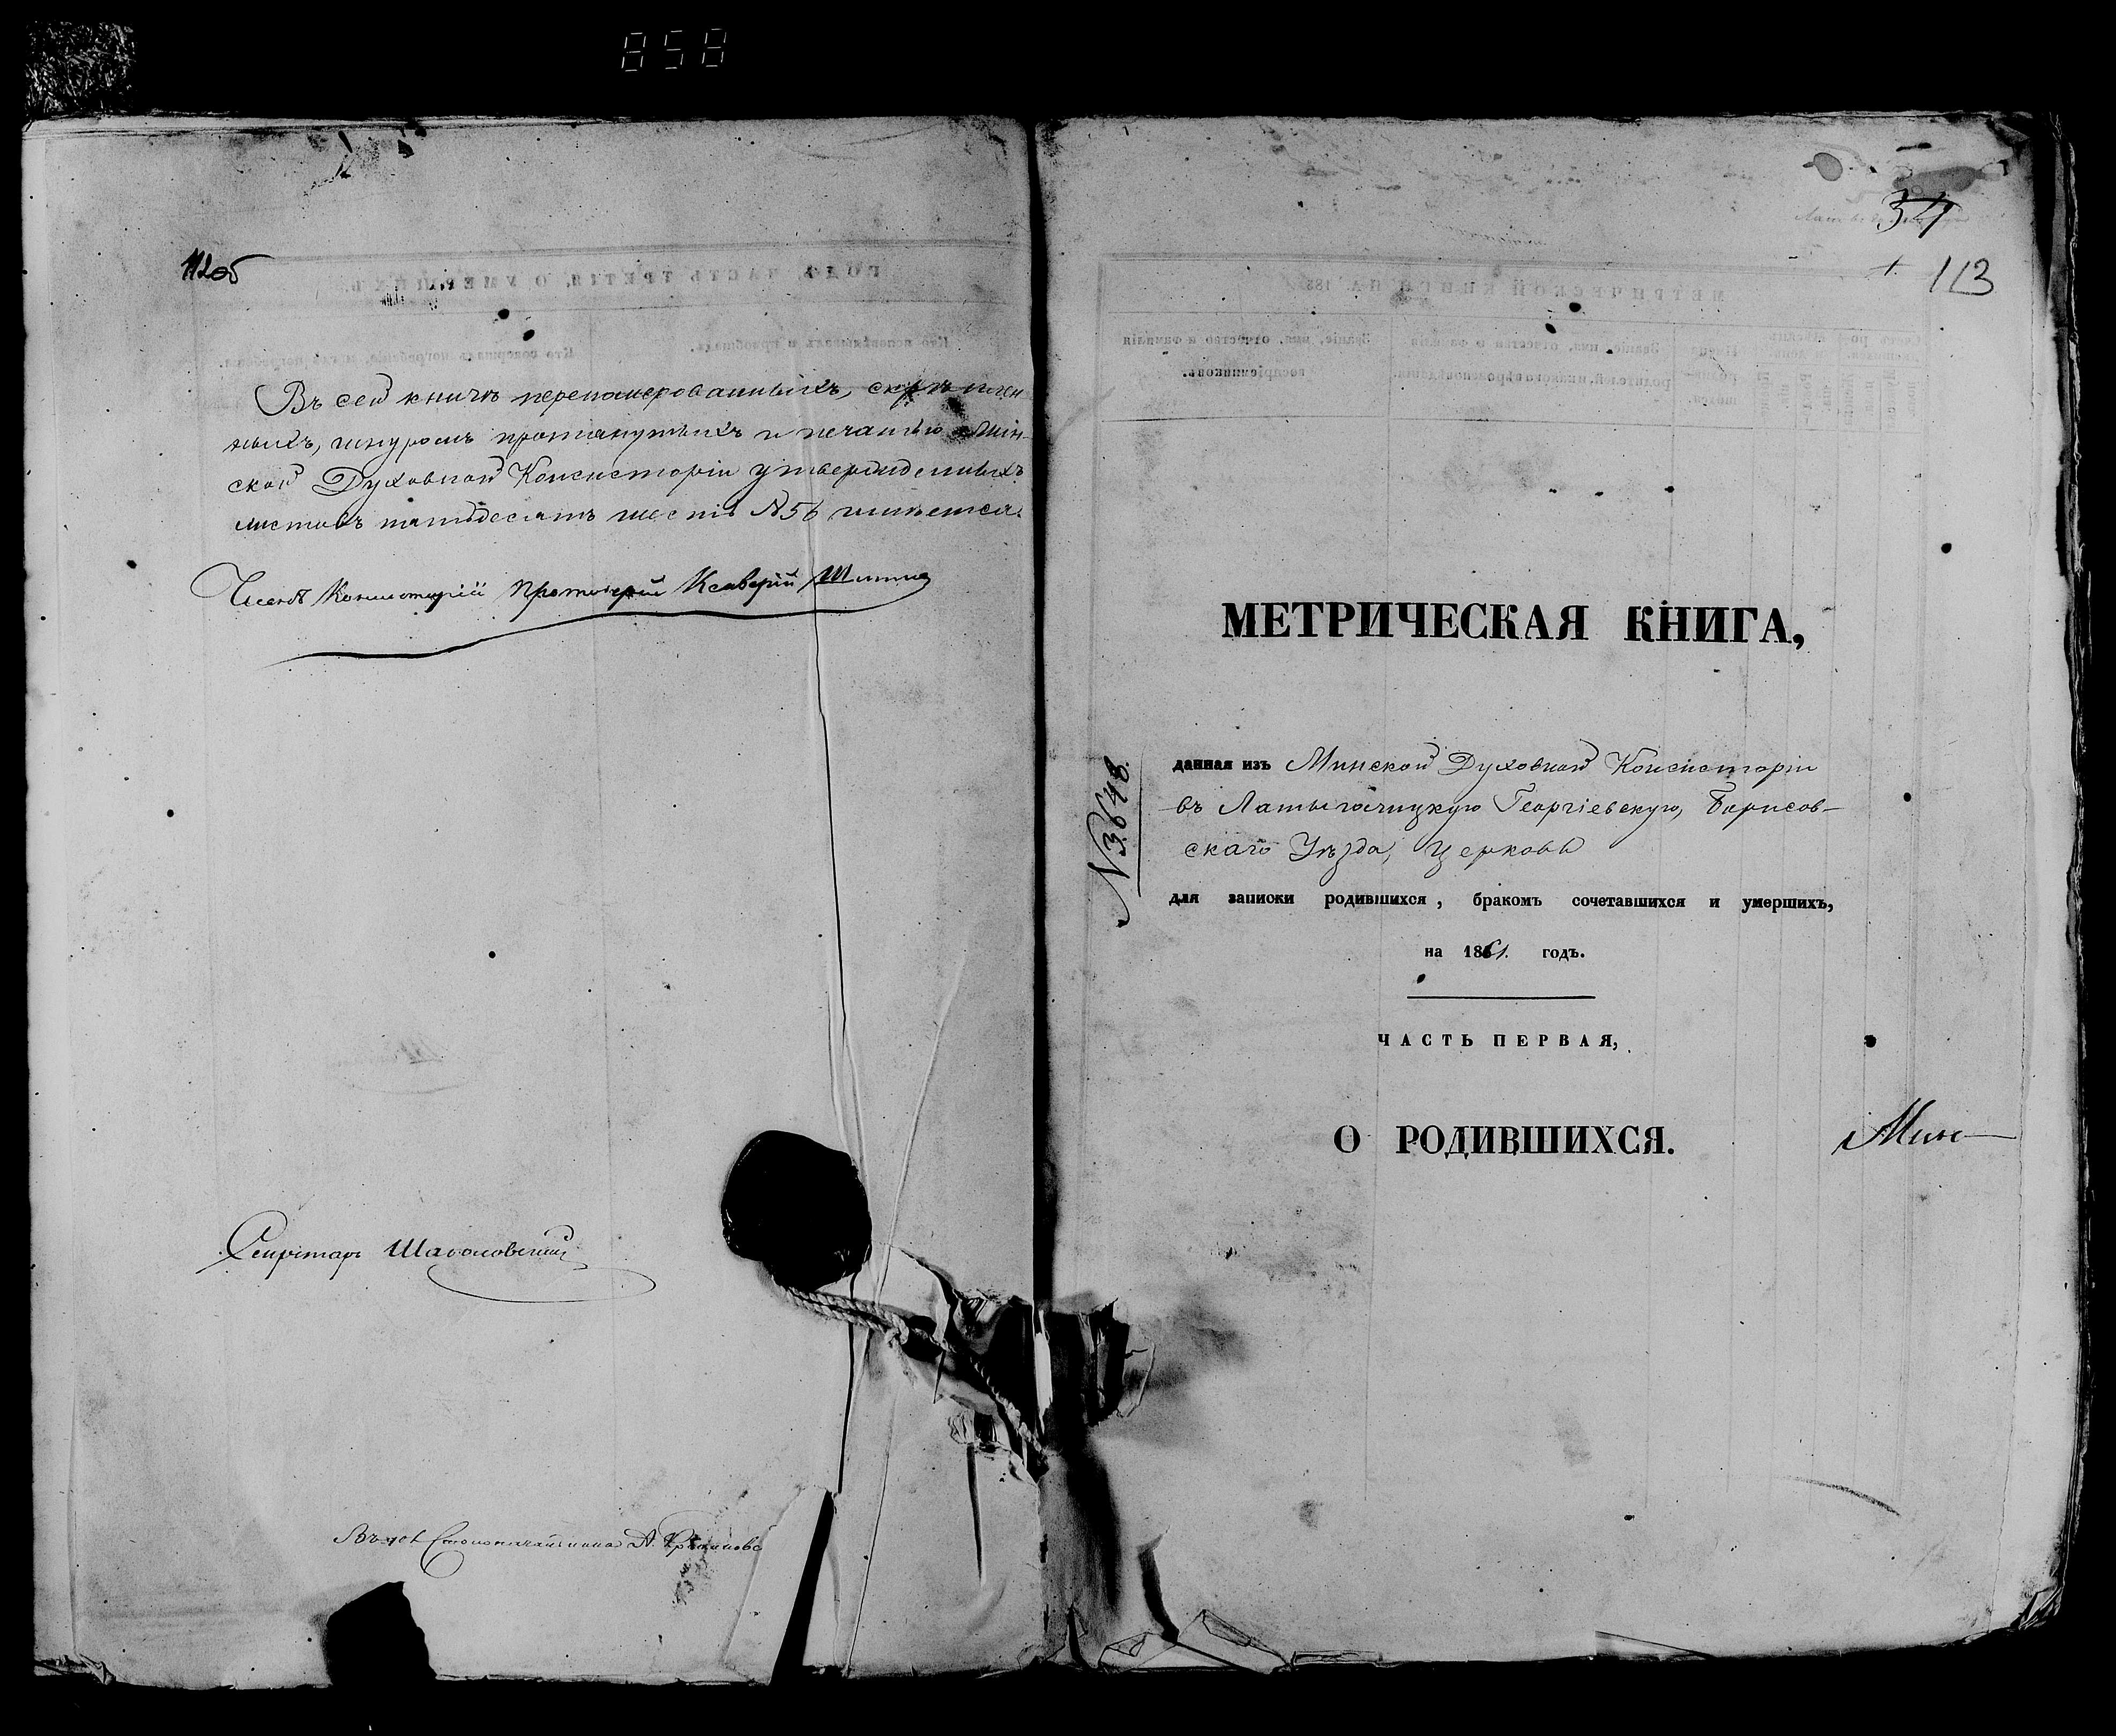 858
112об
Въ сей книгѣ переномерованныхъ, скрѣплен
ныхъ, шнуромъ протянутыхъ и печатью Мин-
ской Духовной Консисторіи утвержденныхъ
листовъ пятьдесятъ шесть №56 имѣется.
Членъ Консисторіи Протоіерей Ксаверій
Секретарь
Столоначальника А.
34
113
МЕТРИЧЕСКАЯ КНИГА,
№3648.
данная изъ Минской Духовной Консисторіи
въ Латыголицкую Георгіевскую, Борисов-
скаго Уѣзда, церковь
для записки родившихся, бракомъ сочетавшихся и умершихъ,
на 1861. годъ.
ЧАСТЬ ПЕРВАЯ,
О РОДИВШИХСЯ.
Мин